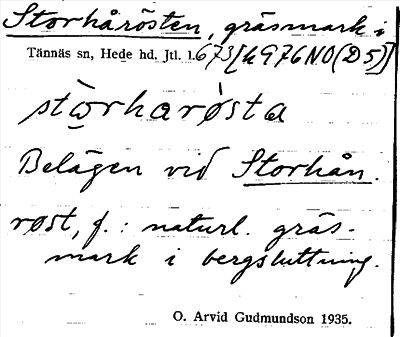 Storhårösten, gräsmark i
Tännäs sn, Hede hd. Jtl. l. 673 [k 976 NO (D5)]
stòrharøsta
Belägen vid Storhån.
røst, f. : naturl. gräs-
mark i bergsluttning.
O. Arvid Gudmundson 1935.